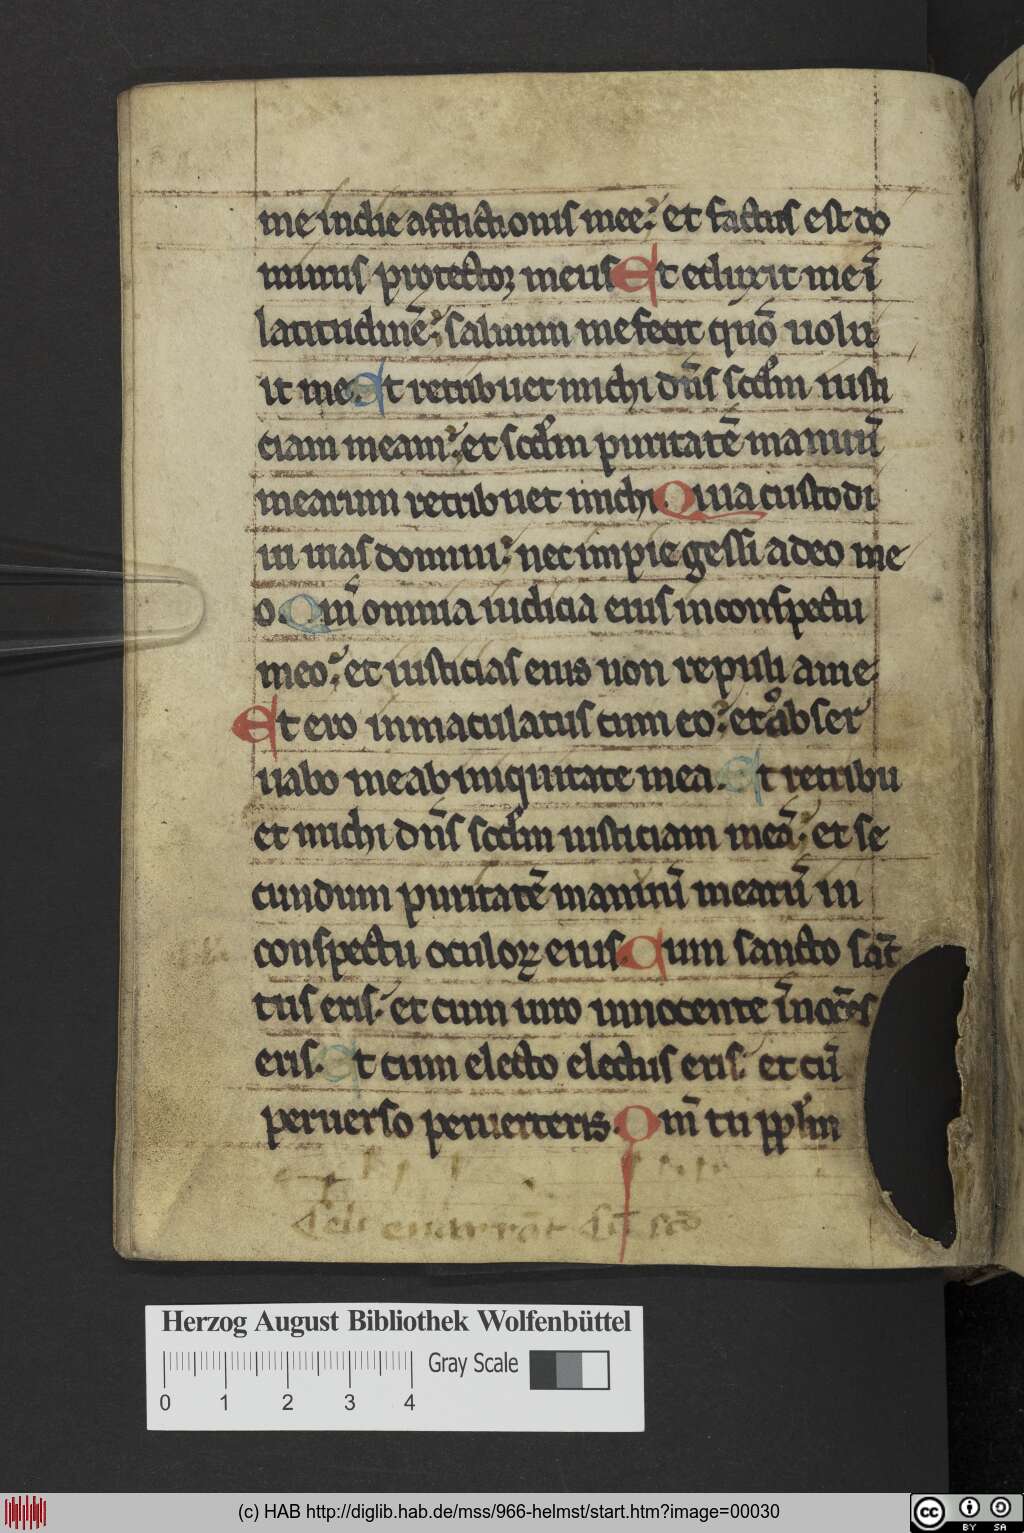 me in die afflictionis mee: et factus est do
minus protectoꝛ meus Et eduxit me ī
latitudinē: saluum me fecit qn̄o uolu
it me. Et retribuet michi dn̄s scd̄m iusti
ciam meam: et scd̄m puritatē manuū
mearum retribuet michi. Quia custodi
ui uias domini: nec impie gessi a deo me
o. Qm̄ omnia iudicia eius in conspectu
meo: et iusticias eius non repuli a me.
Et ero inmaculatus cum eo: et obser
uabo me ab iniquitate mea. Et retribu
et michi dn̄s scd̄m iusticiam meā: et se
cundum puritatē manuū mearū in
conspectu oculoꝝ eius. Cum sancto sāc
tus eris. et cum uiro innocente īnocēs
eris. Et cum electo electus eris. et cū
peruerso peruerteris. Qm̄ tu ppl̄m
Celi enarrāt
Herzog August Bibliothek Wolfenbüttel
Gray Scale
0 1 2 3 4
(c) HAB http://diglib.hab.de/mss/966-helmst/start.htm?image=00030
cc BY SA